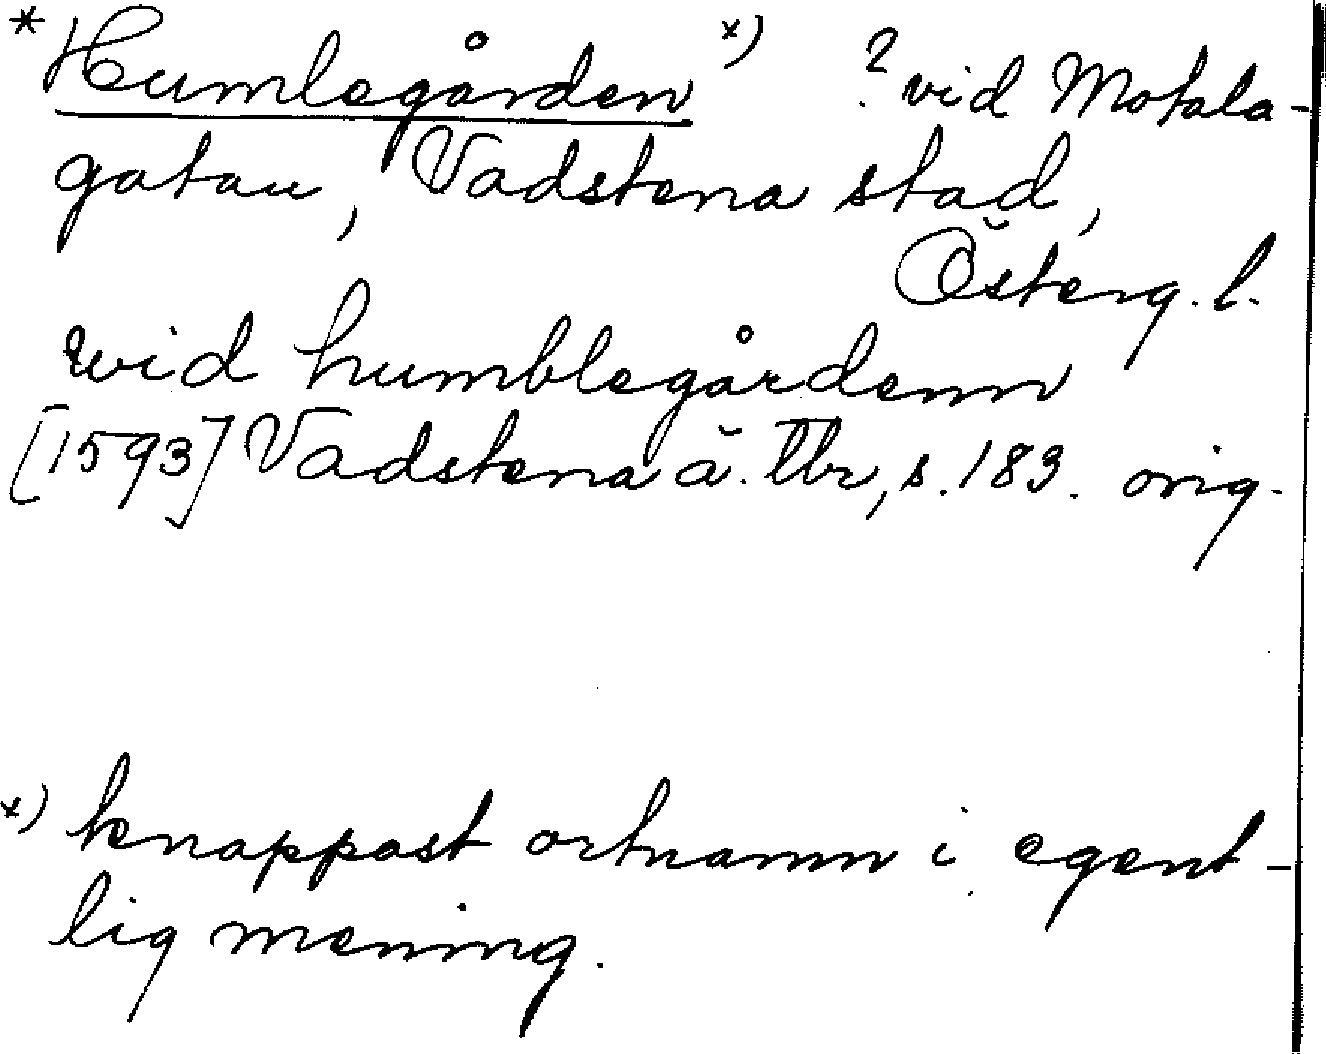 *Humlegården x) ? vid Motala-
gatan, Vadstena stad,
Österg. l.
wid humblegårdenn
[1593] Vadstena ä. Tbr, s. 183. orig.
x) knappast ortnamn i egent-
lig mening.